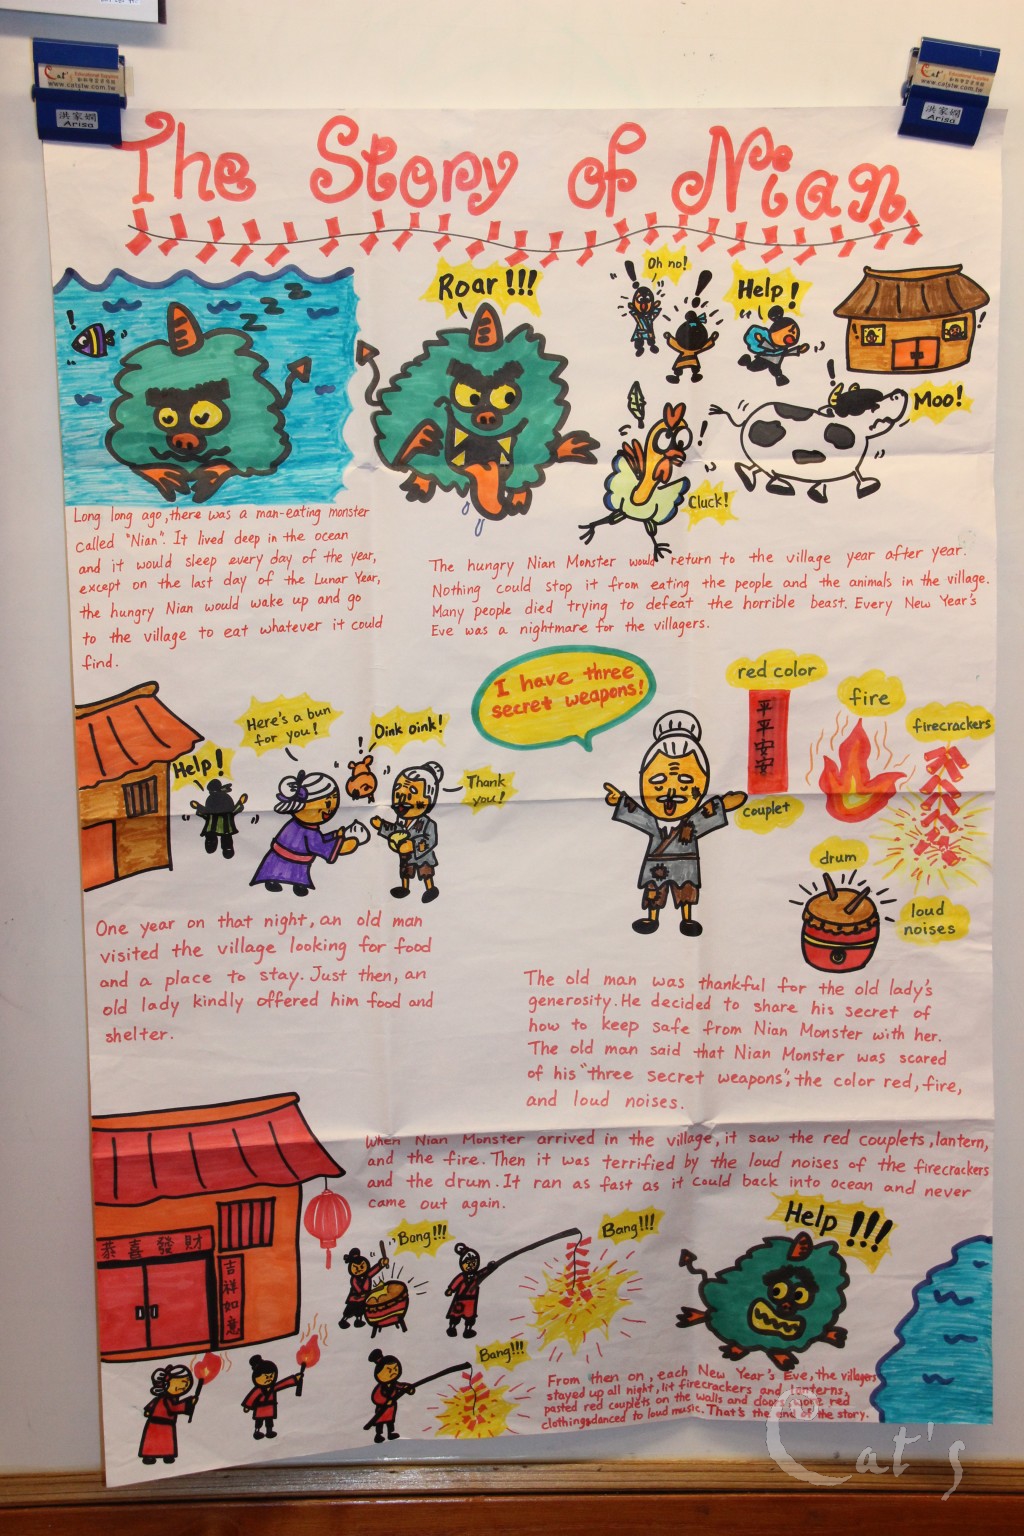 Cat's Educational Supplies
www.catstw.com.tw
洪家嫺
Arisa
Cat's Educational Supplies
www.catstw.com.tw
洪家嫺
Arisa
The Story of Nian
Roar!!!
Oh no!
Help!
Moo!
Cluck!
Long long ago, there was a man-eating monster
called "Nian". It lived deep in the ocean
and it would sleep every day of the year,
except on the last day of the Lunar Year,
the hungry Nian would wake up and go
to the village to eat whatever it could
find.
The hungry Nian Monster would return to the village year after year.
Nothing could stop it from eating the people and the animals in the village.
Many people died trying to defeat the horrible beast. Every New Year's
Eve was a nightmare for the villagers.
Help!
Here's a bun
for you!
Oink oink!
Thank
you!
One year on that night, an old man
visited the village looking for food
and a place to stay. Just then, an
old lady kindly offered him food and
shelter.
I have three
secret weapons!
red color
平平安安
couplet
fire
firecrackers
drum
loud
noises
The old man was thankful for the old lady's
generosity. He decided to share his secret of
how to keep safe from Nian Monster with her.
The old man said that Nian Monster was scared
of his "three secret weapons", the color red, fire,
and loud noises.
When Nian Monster arrived in the village, it saw the red couplets, lantern,
and the fire. Then it was terrified by the loud noises of the firecrackers
and the drum. It ran as fast as it could back into ocean and never
came out again.
恭喜發財
吉祥如意
Bong!!!
Bang!!!
Bang!!!
Help!!!
From then on, each New Year's Eve, the villagers
stayed up all night, lit firecrackers and lanterns,
pasted red couplets on the walls and doors, wore red
clothing, danced to loud music. That's the end of the story.
Cat's